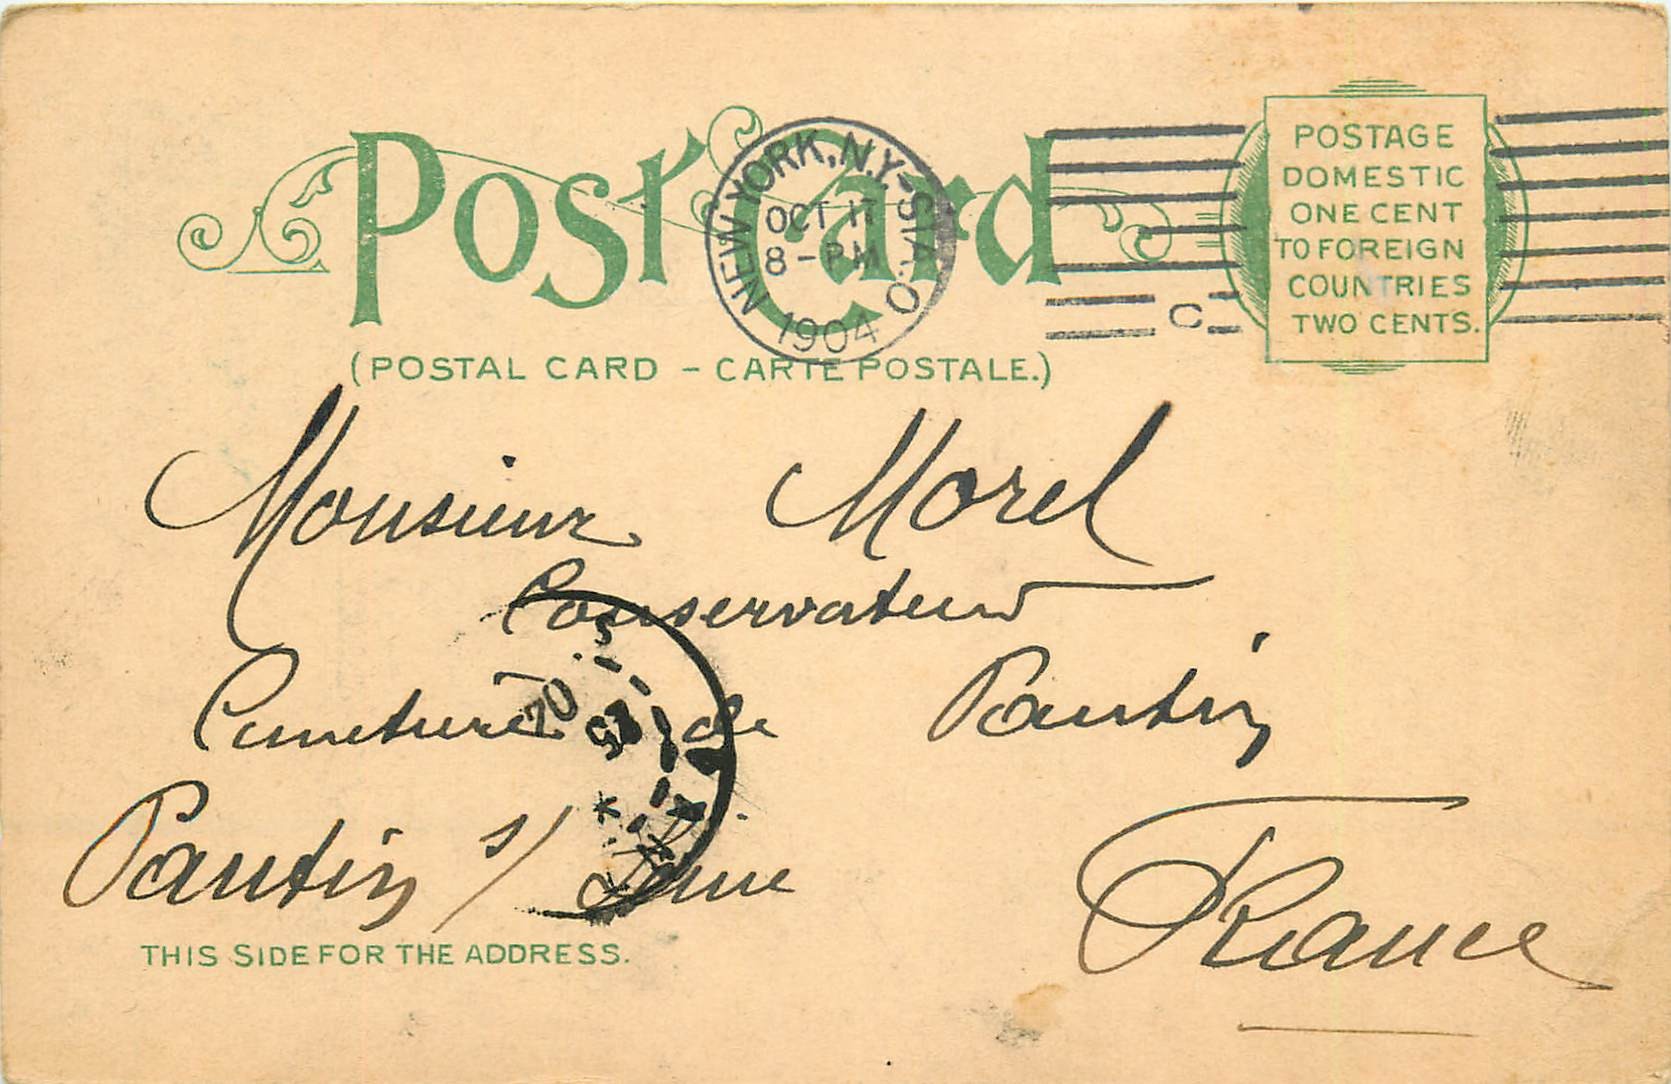 Post Card
(POSTAL CARD - CARTE POSTALE.)
NEW YORK, N.Y.-STA. O
OCT 17
8-PM
1904
C
POSTAGE
DOMESTIC
ONE CENT
TO FOREIGN
COUNTRIES
TWO CENTS.
Monsieur Morel
Conservateur
Cimetière de Pantin
Pantin s/ Seine
France
THIS SIDE FOR THE ADDRESS.